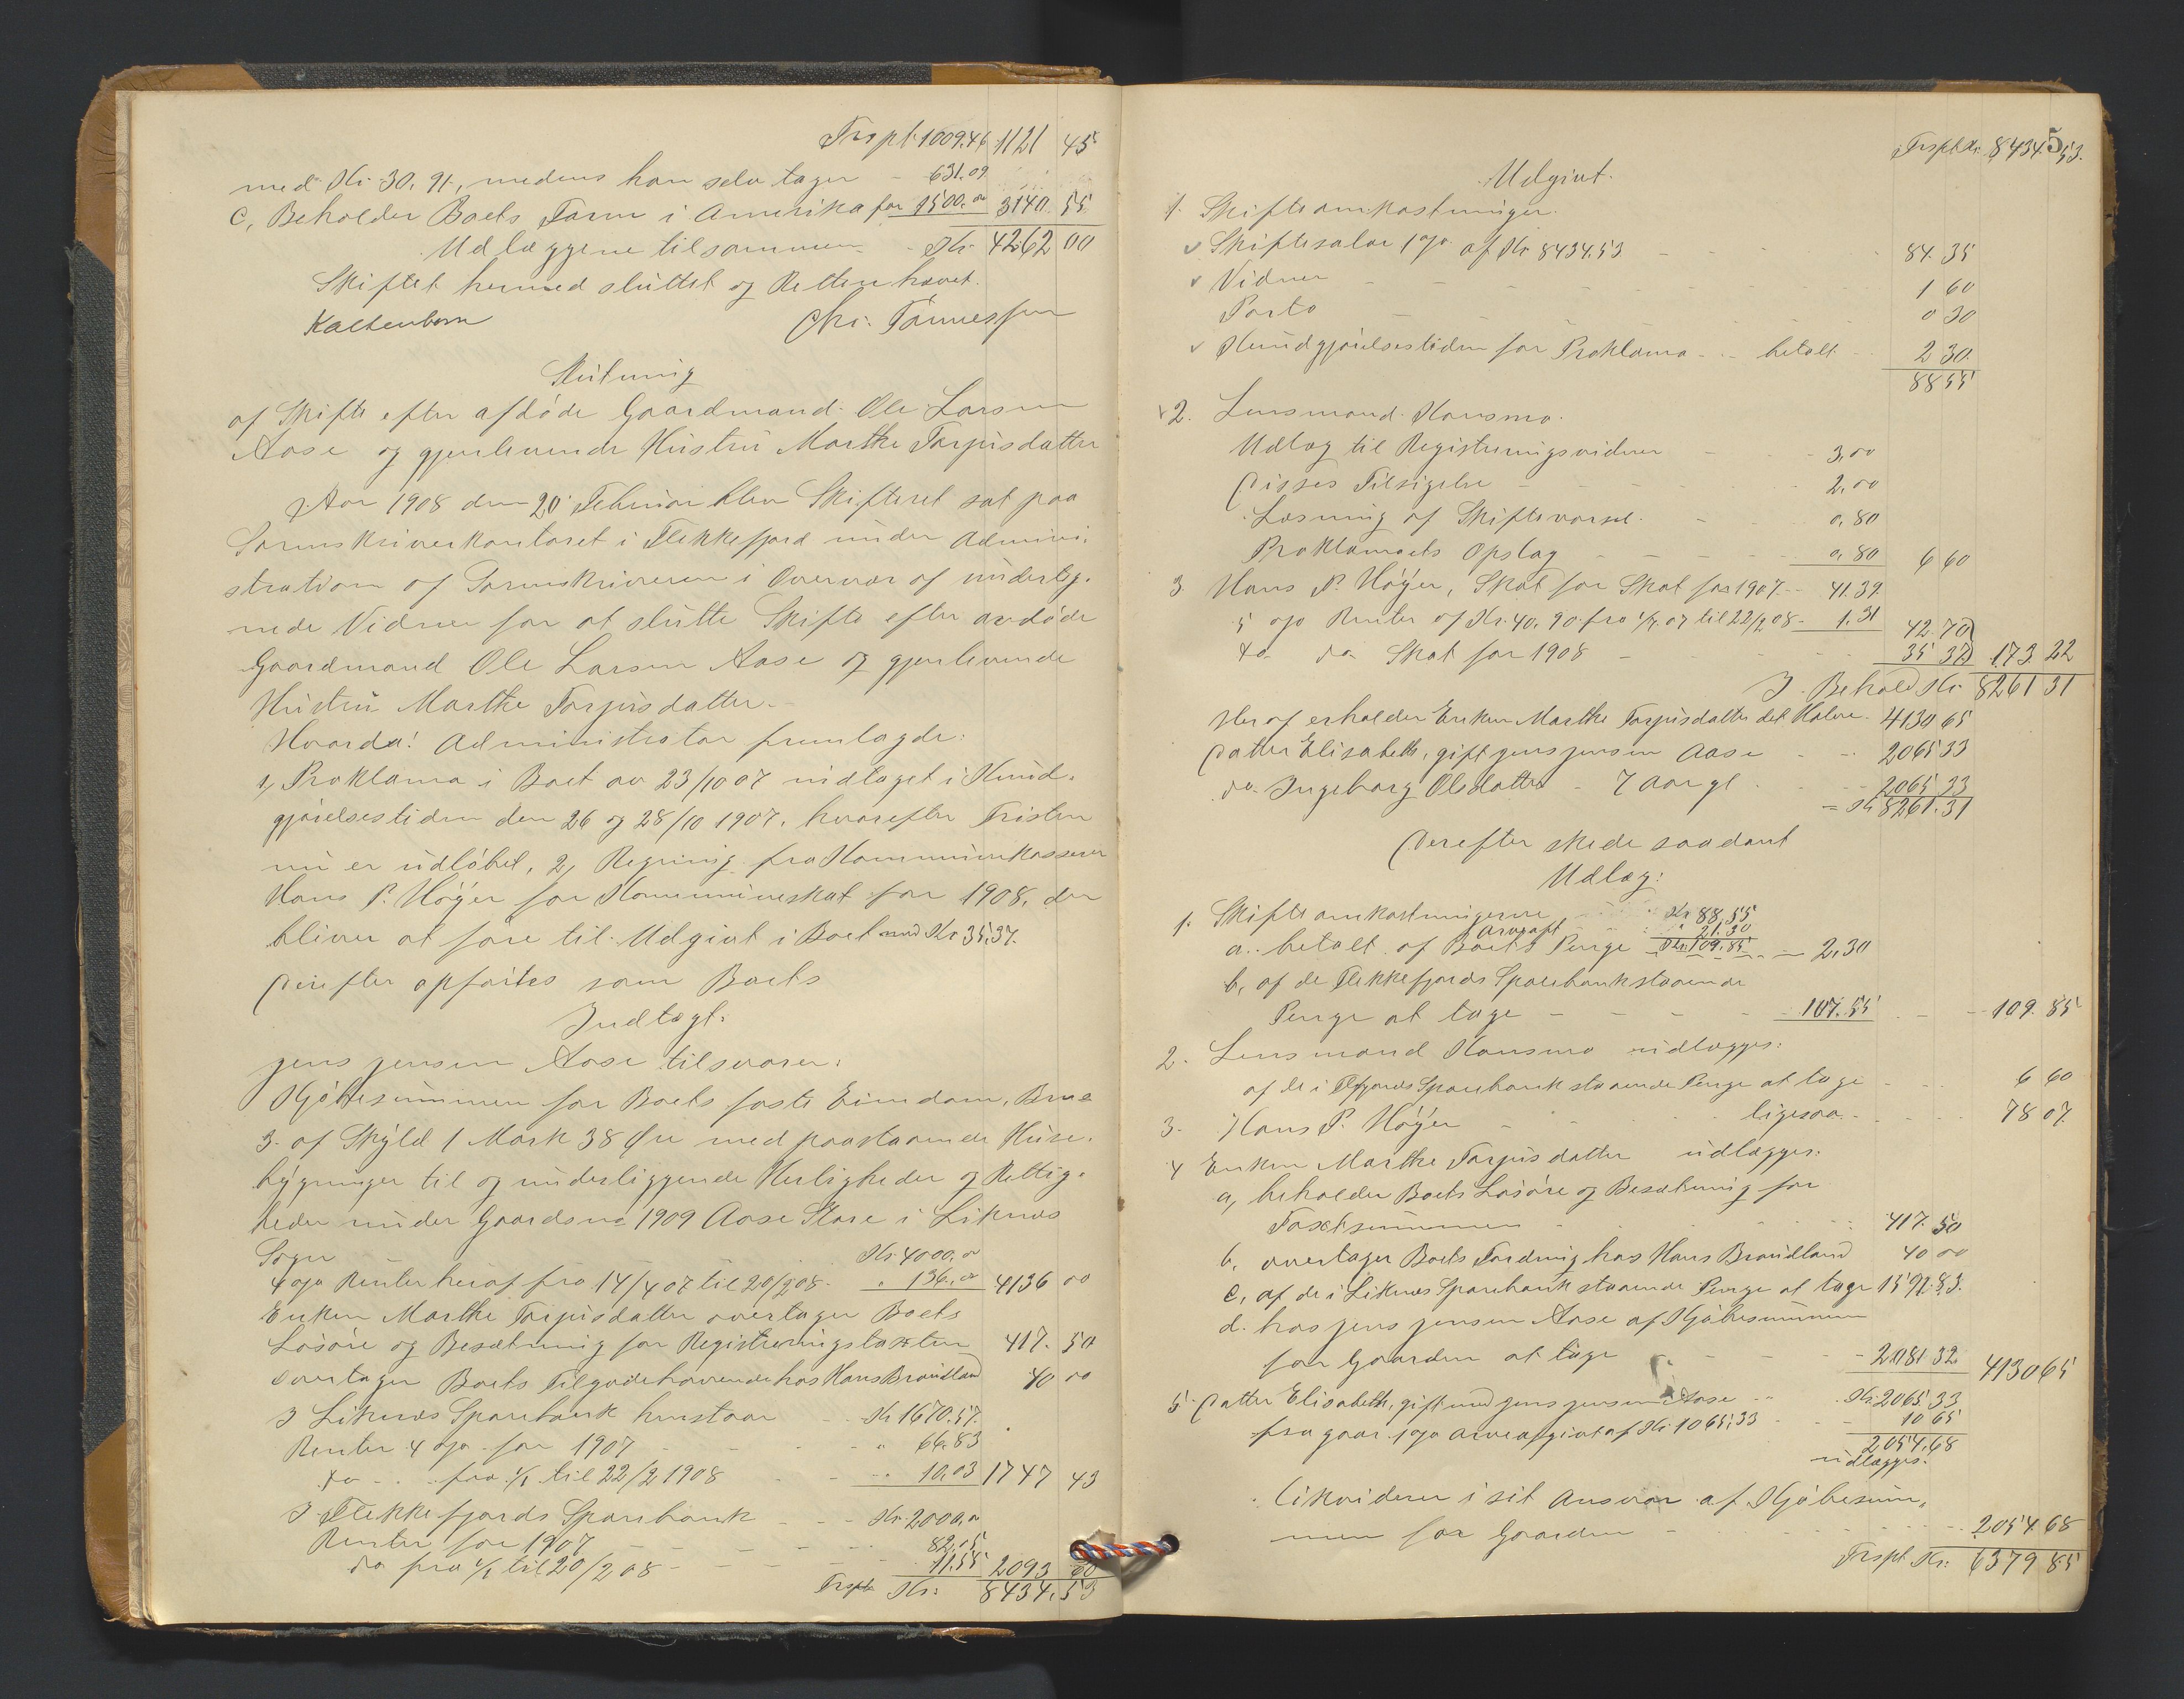 Trspt. 1009.46 1121 45
med Kr. 30.91, medens han selv tager - 631.09
c, Beholder Boets Farm i Amerika for 1500.00 3140 55
Udlæggene tilsammen - Kr. 4262 00
Skiftet hermed sluttet og Retten hævet.
Kaltenborn Chr. Tönnessen
Slutning
af Skifte efter afdöde Gaardmand Ole Larsen
Aase og gjenlevende Hustru Marthe Torjusdatter
Aar 1908 den 20 Februar blev Skifteret sat paa
Sorenskriverkontoret i Flekkefjord under Admini-
stration af Sorenskriveren i Overvær af underteg-
nede Vidner for at slutte Skifte efter avdöde
Gaardmand Ole Larsen Aase og gjenlevende
Hustru Marthe Torjusdatter.
Hvorda! Administrator fremlagde:
1, Proklama i Boet av 23/10 07 indtaget i Kund-
gjörelsestiden den 26 og 28/10 1907, hvorefter Fristen
nu er udlöbet, 2, Regning fra Kommunekasserer
Hans P. Höÿer for Kommuneskat for 1908, der
bliver at före til Udgivt i Boet med Kr 35.37.
Derefter opförtes som Boets
Indtægt:
Jens Jensen Aase tilsvarer:
Kjöbesummen for Boets faste Eiendom, Brno
3 af Skyld 1 Mark 38 Øre med paastaaende Huse-
bygninger til og underliggende Herligheder og Rettig-
heder under Gaardsno 1909 Aase Store i Liknes
Sogn - Kr. 4000.00
4 o/o Renter heraf fra 14/4 07 til 20/2 08 - " 136.00 4136 00
Enken Marthe Torjusdatter overtager Boets
Lösöre og Besætning for Registreringstaxten 417. 50
overtager Boets Tilgodehavende hos Hans Bröudland 40 00
I Liknes Sparebank henstaar - Kr 1670.57.
Renter 4 o/o for 1907 - " 66.83
do - fra 1/1 til 22/2 1908 - " 10.03 1747 43
I Flekkefjords Sparebank - Kr. 2000.00
Renter for 1907 - 82.05
do fra 1/1 til 20/2 08 - 11.55 2093 60
Trspt Kr: 8434.53
Trspt. Kr. 8434.53.
Udgivt.
1. Skifteomkostninger.
Skiftesalær 1 o/o af Kr 8434.53 - 84. 35
Vidner - 1 60
Porto - 0 30
Kundgjörelsestiden for Proklama - betalt - 2 30.
88 55
2. Lensmand Hansmo.
Udlæg til Registreringsvidner - 3,00
Disses Tilsigelse - 2,00
Læsning af Skiftevarsel - 0,80
Proklamaets Opslag - 0,80 6 60
3 Hans P. Höÿer, Skat for Skat for 1907 - 41.39
5 o/o Renter af Kr. 40.90 fra 1/7 07 til 22/2 08 - 1.31 42.70
do do Skat for 1908 - 35 37 173 22
I Behold Kr. 8261 31
Heraf erholder Enken Marthe Torjusdatter det Halve - 4130 65
Datter Elisabeth, gift Jens Jensen Aase - 2065 33
do Ingeborg Olsdatter - 7 Aar gl - 2065 33
= Kr 8261.31
Derefter skede saadant
Udlæg:
1. Skifteomkostningerne - Kr. 88.55
Arveaft - " 21.30
a. betalt af Boets Penge Kr. 109.85 - 2,30
b, af de Flekkefjords Sparebank staaende
Penge at tage - 107.55 - 109. 85
2. Lensmand Hansmo udlægges:
af de i Flfjords Sparebank staaende Penge at tage - 6 60
3. Hans P. Höÿer - ligesaa - 78 07.
4 Enken Marthe Torjusdatter udlægges:
a, beholder Boets Lösöre og Besætning for
Taxtsummen - 417. 50
b, overtager Boets Fordring hos Hans Bröudland 40 00
c, af de i Liknes Sparebank staaende Penge at tage 1591.83.
d. hos Jens Jensen Aase af Kjöbesummen
for Gaarden at tage - 2081 32 4130 65
5. Datter Elisabeth, gift med Jens Jensen Aase - Kr. 2065.33
fragaar 1 o/o Arveafgivt af Kr. 1065.33 - 10 65
2054.68
udlægges:
likviderer i sit Ansvar af Kjöbesum-
men for Gaarden - 2054 68
Trspt. Kr. 6379 85